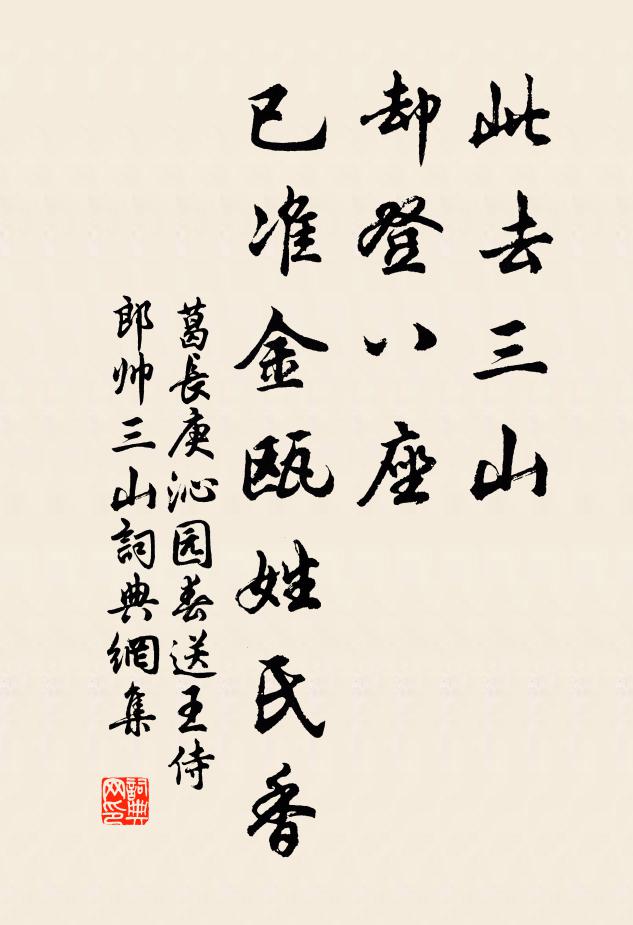 此去三山
却登八座
已准金瓯姓氏香
葛長庚沁园春送王侍
郎帅三山詞典網集
詞典网印